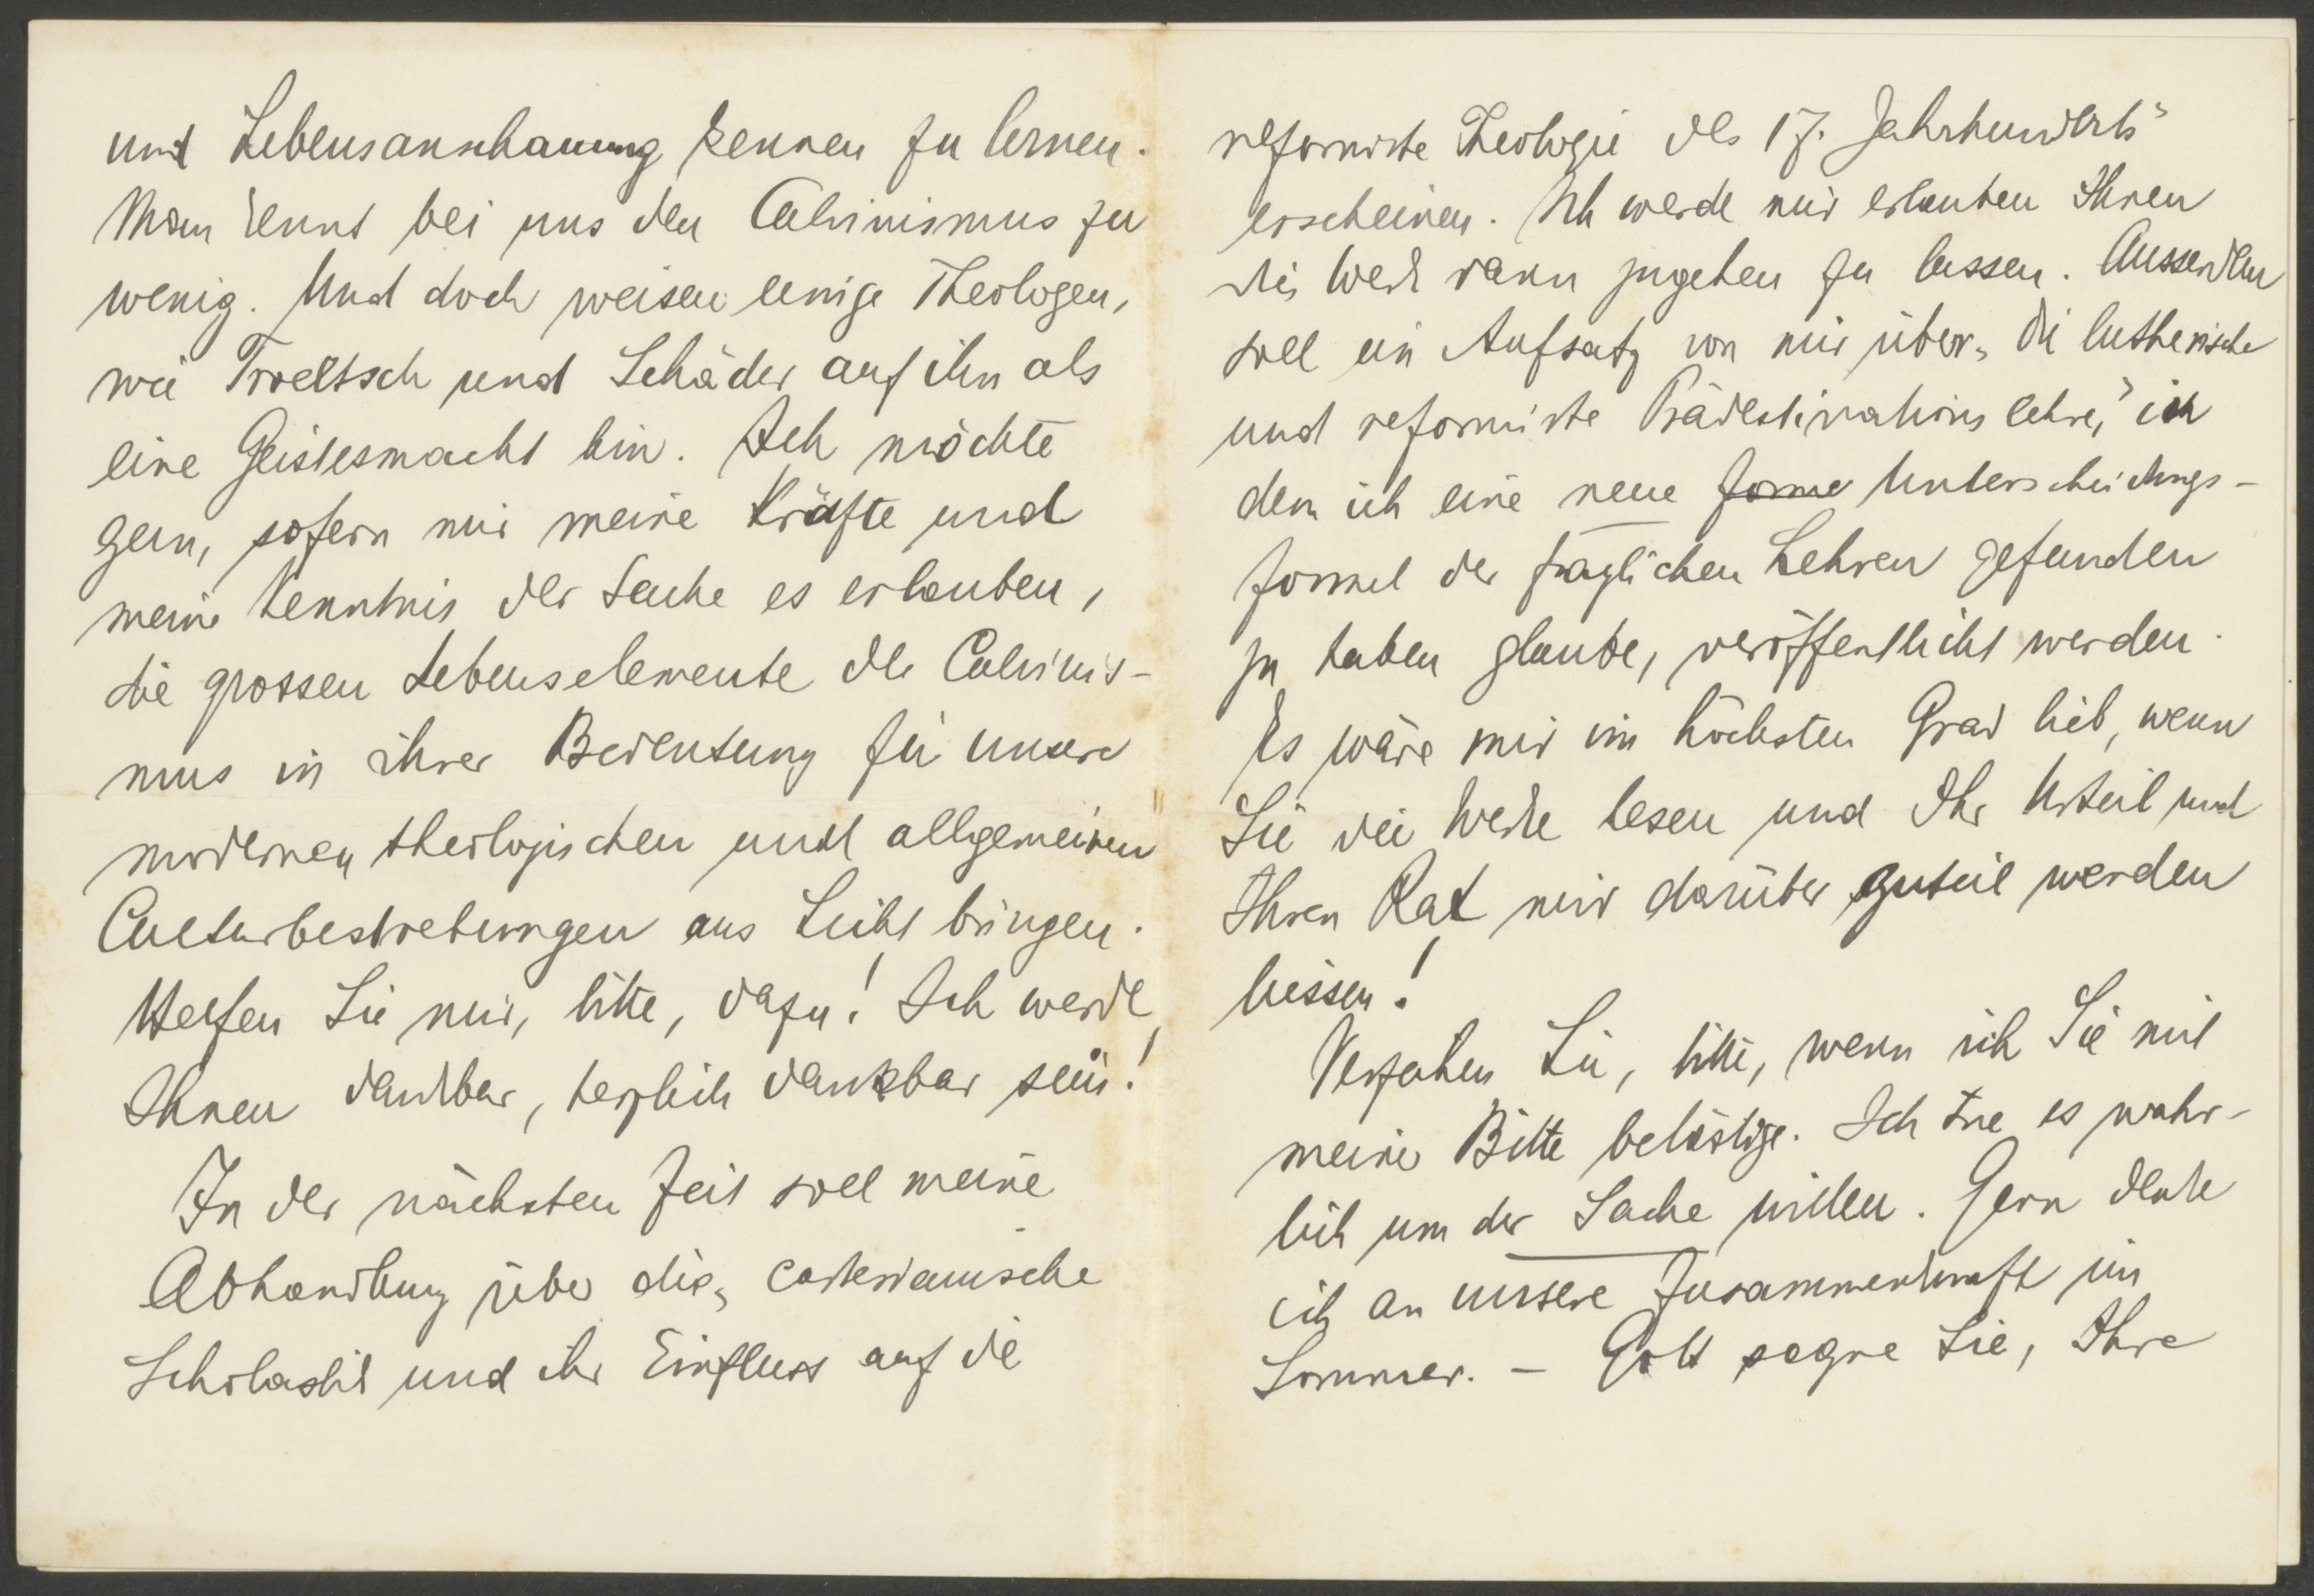 und Lebensanschauung kennen zu lernen.
Man kennt bei uns den Calvinismus zu
wenig. Und doch weisen einige Theologen,
wie Troeltsch und Schäder auf ihn als
eine Geistesmacht hin. Ich möchte
gern, sofern mir meine Kräfte und
meine Kenntnis der Sache es erlauben,
die grossen Lebenselemente des Calvinis-
mus in ihrer Bedeutung für unsere
modernen theologischen und allgemeinen
Culturbestrebungen ans Licht bringen.
Helfen Sie mir, bitte, dazu! Ich werde
Ihnen dankbar, herzlich dankbar sein!
In der nächsten Zeit soll meine
Abhandlung über die „cartesianische
Scholastik und ihr Einfluss auf die
reformirte Theologie des 17. Jahrhunderts"
erscheinen. Ich werde mir erlauben Ihnen
die Werk dann zugehen zu lassen. Ausserdem
soll ein Aufsatz von mir über „die lutherische
und reformirte Prädestinationslehre," in
dem ich eine neue Forme Unterscheidungs-
formel der fraglichen Lehren gefunden
zu haben glaube, veröffentlicht werden.
Es wäre mir im höchsten Grad lieb, wenn
Sie die Werke lesen und Ihr Urteil und
Ihren Rat mir darüber zuteil werden
liessen!
Verzeihen Sie, bitte, wenn ich Sie mit
meiner Bitte belästige. Ich tue es wahr-
lich um der Sache willen. Gern denke
ich an unsere Zusammenkunft im
Sommer. – Gott segne Sie, Ihre